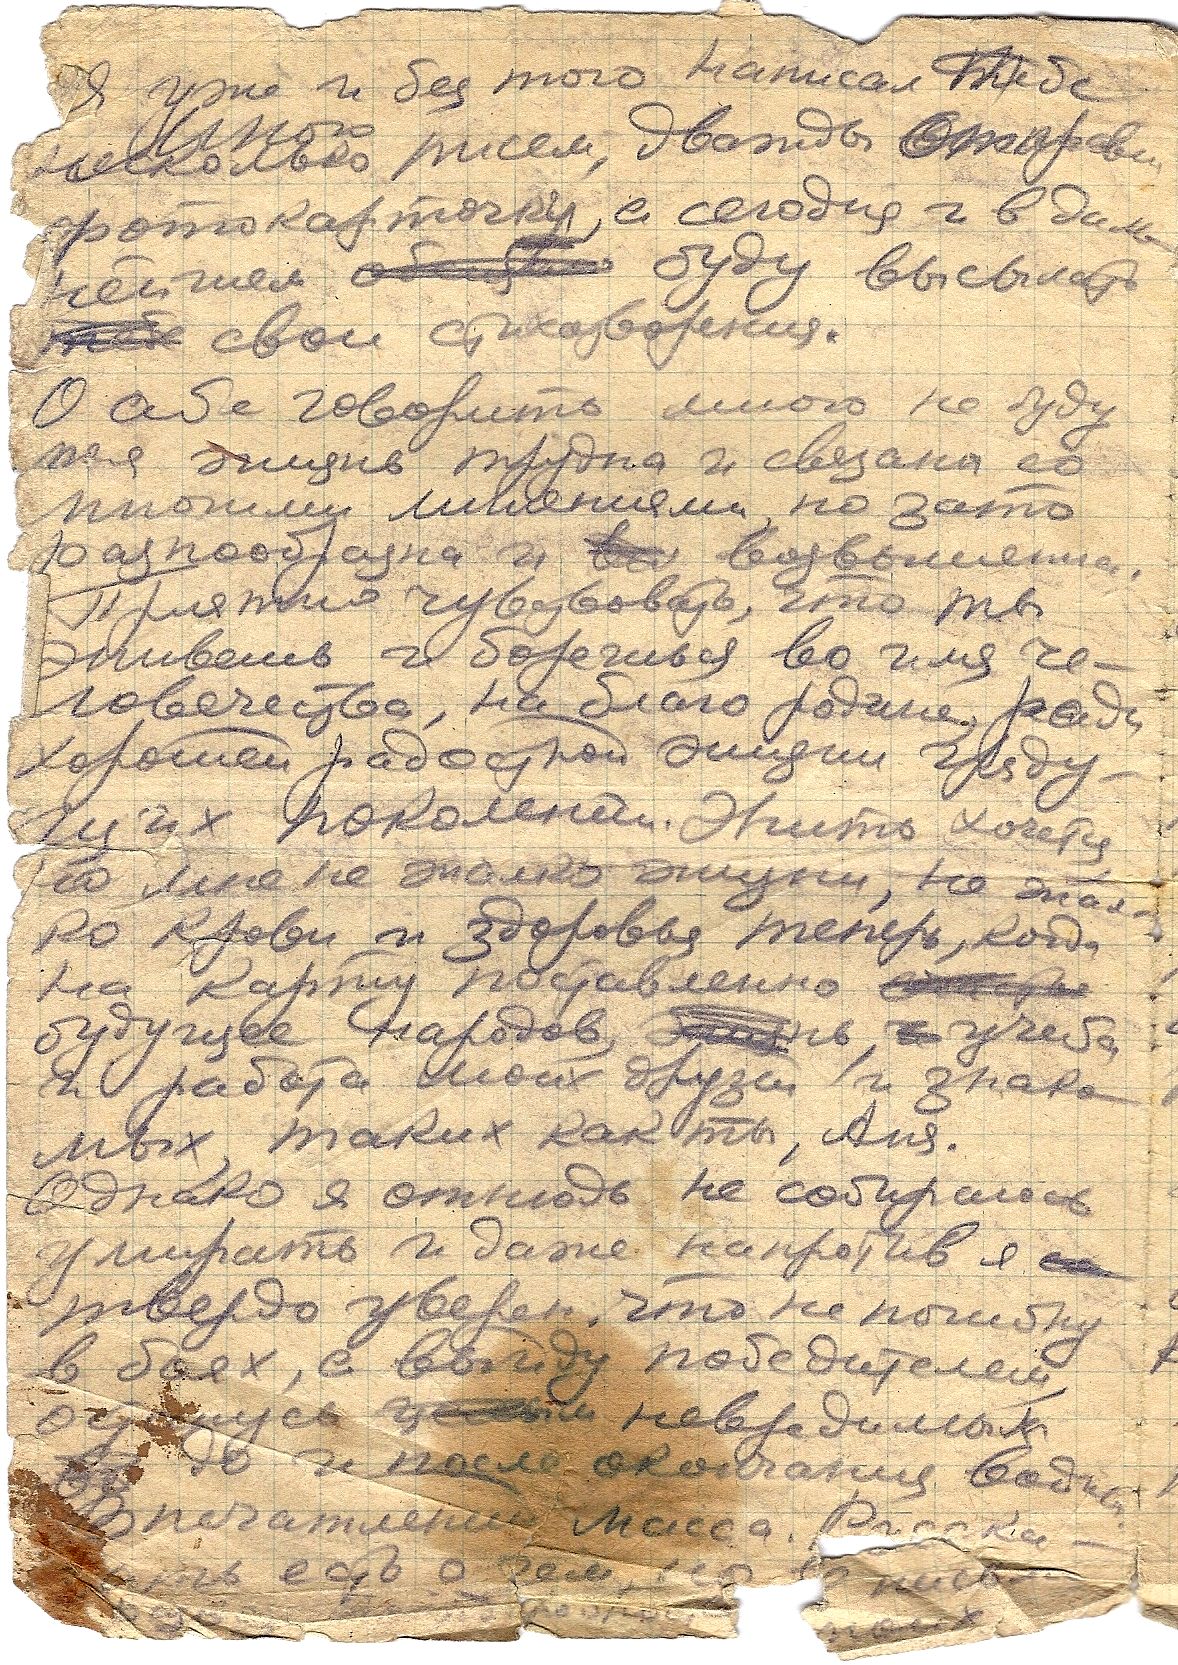 Я уже и без того написал Тебе
много
несколько писем, дважды отправил
фотокарточки, а сегодня и в даль-
нейшем буду высылать
тебе свои стихотворения.
О себе говорить много не буду
моя жизнь трудна и связана со
многими лишениями, но зато
разнообразна и возвышенна.
Приятно чувствовать, что ты
живешь и борешься во имя че-
ловечества, на благо родине, ради
хорошей радостной жизни гряду-
щих поколений. Жить хочется
но мне не жалко жизни, не жал-
ко крови и здоровья теперь, когда
на карту поставленно
будущее народов, жизнь, учеба
и работа моих друзей и знако-
мых, таких как ты, Аня.
Однако я отнюдь не собираюсь
умирать и даже напротив я
твердо уверен, что не погибну
в боях, а выйду победителем,
невредимым
до и после окончания войны.
Впечатлений масса. Расска-
зывать есть о чем, но в письме
моих